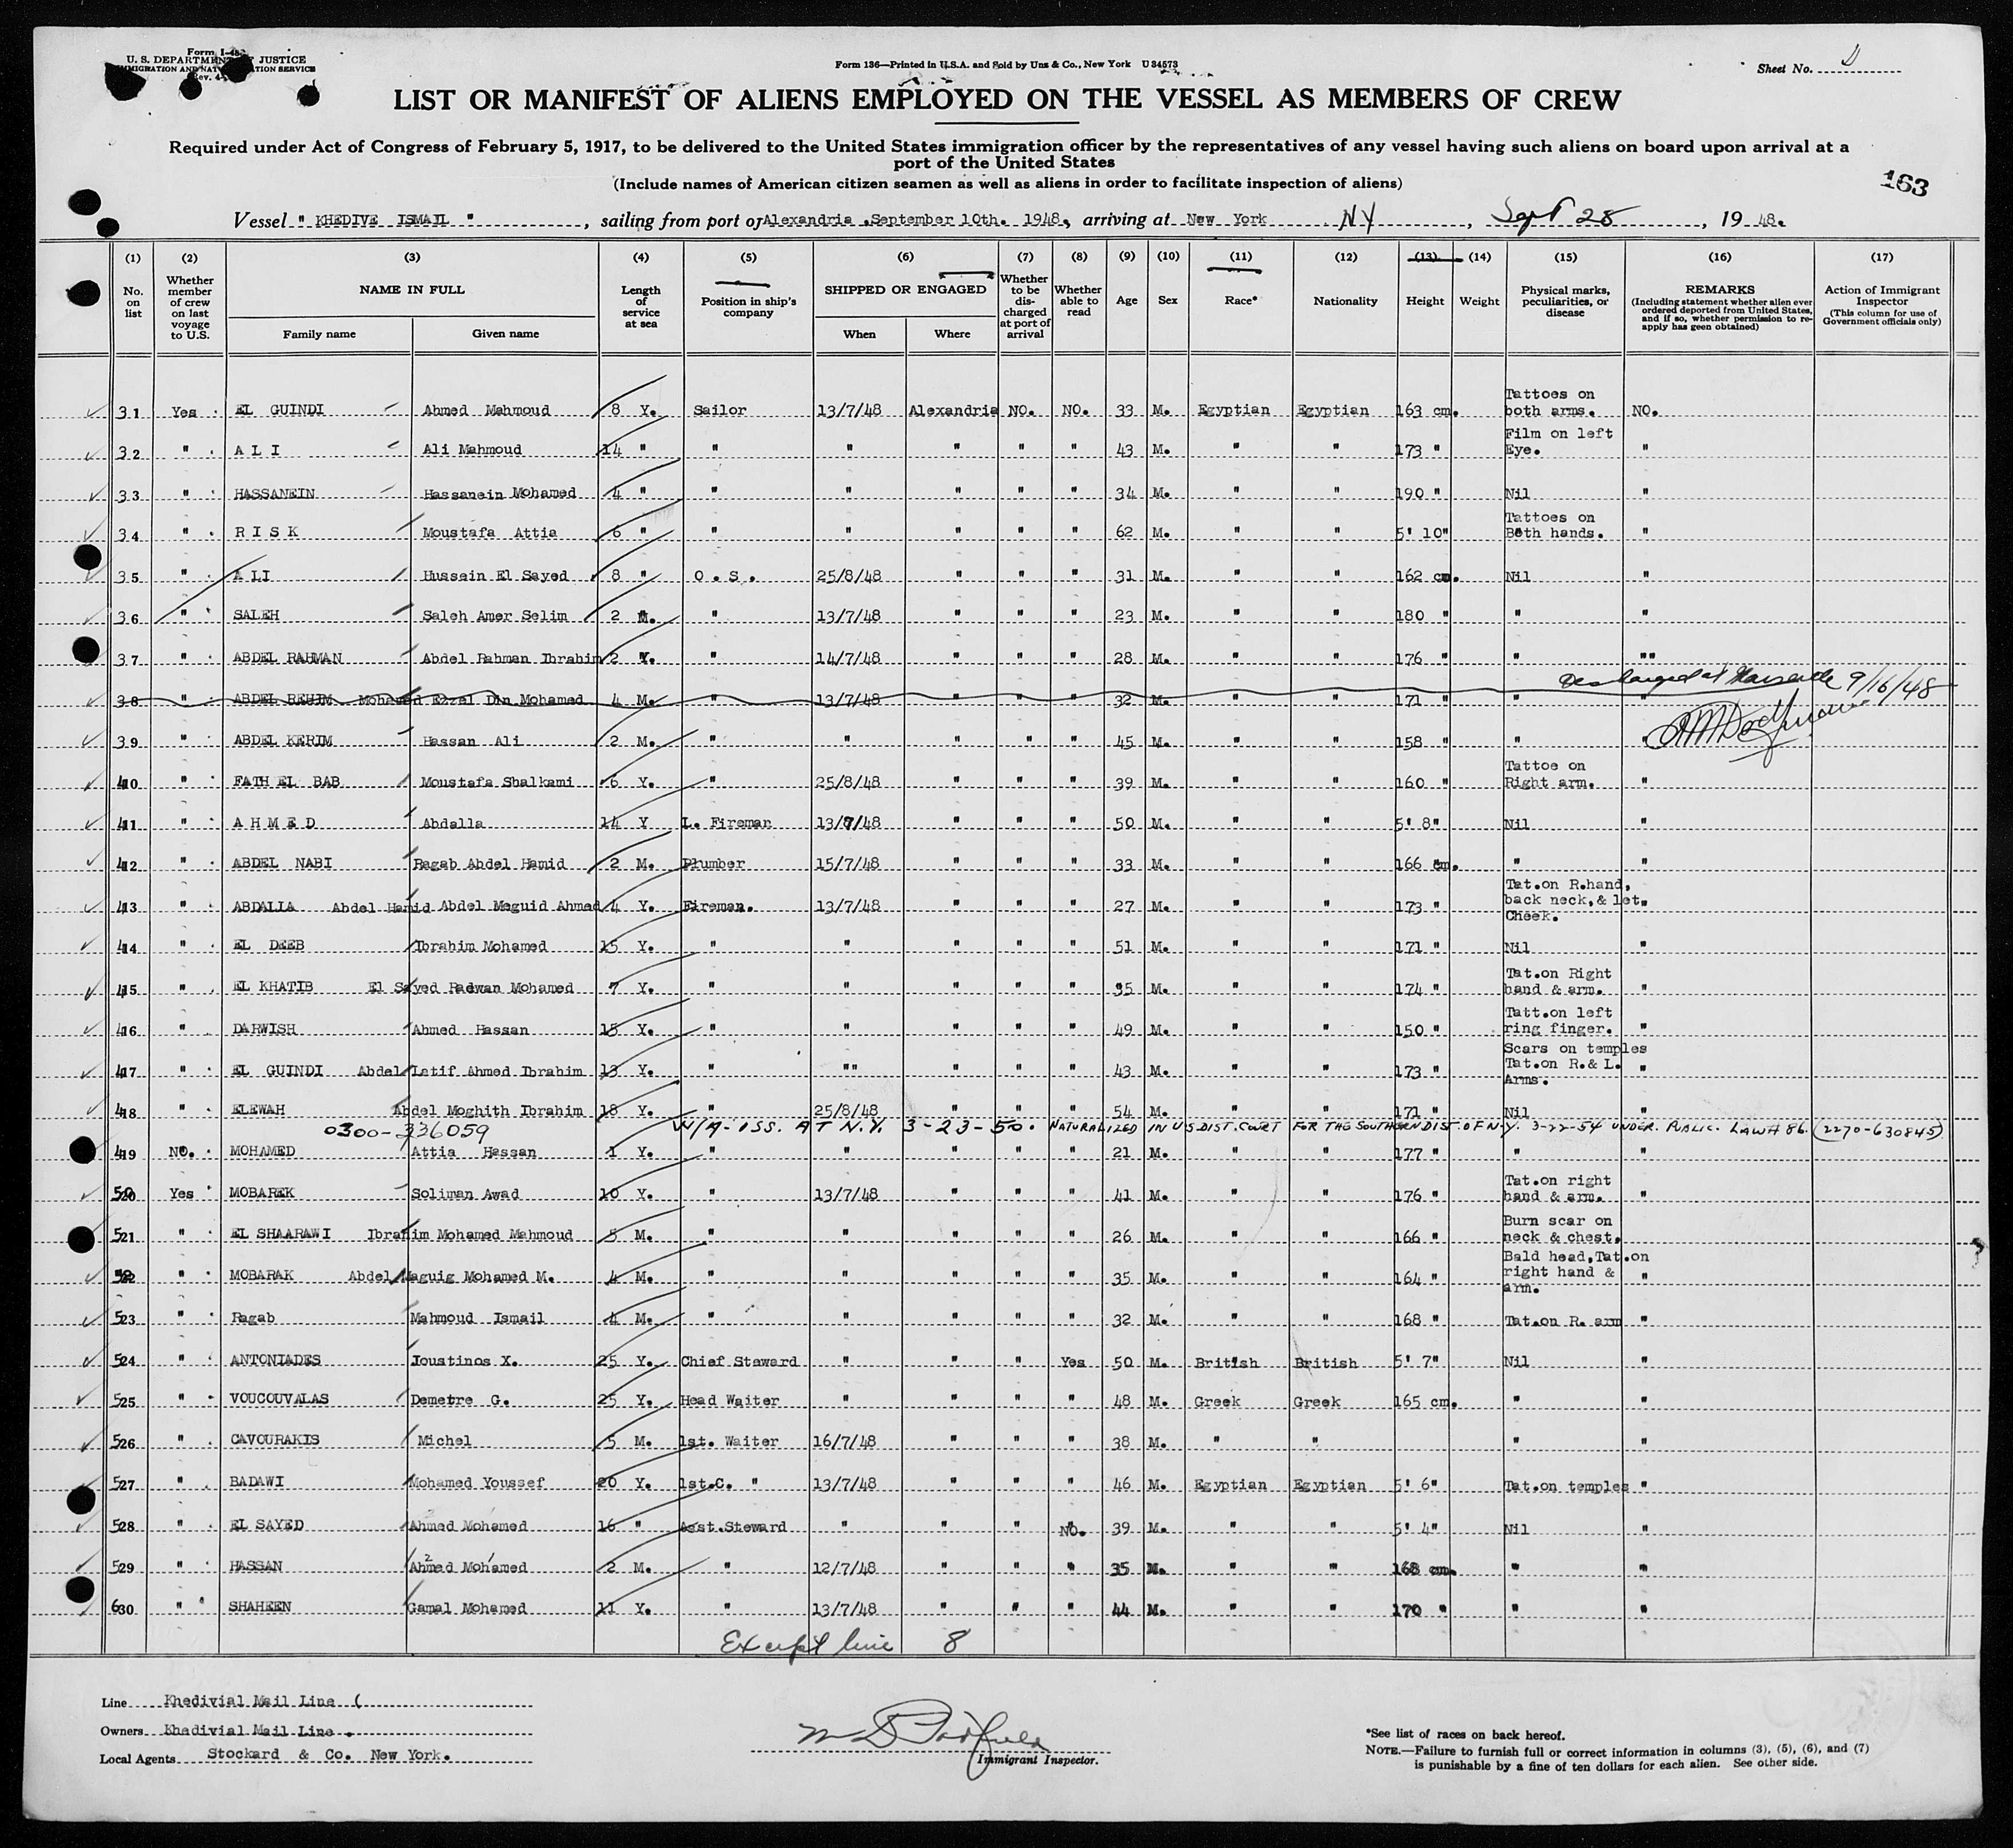 Form I-48
U. S. DEPARTMENT JUSTICE
IMMIGRATION AND NATION SERVICE
Rev. 4-
Form 136—Printed in U.S.A. and Sold by Unz & Co., New York U 34573
Sheet No.
LIST OR MANIFEST OF ALIENS EMPLOYED ON THE VESSEL AS MEMBERS OF CREW
Required under Act of Congress of February 5, 1917, to be delivered to the United States immigration officer by the representatives of any vessel having such aliens on board upon arrival at a
port of the United States
(Include names of American citizen seamen as well as aliens in order to facilitate inspection of aliens)
163
Vessel " KHEDIVE ISMAIL ", sailing from port of Alexandria September 10th. 1948, arriving at New York NY, Sept 28, 19 48.
(1) (2) (3) (4) (5) (6) (7) (8) (9) (10) (11) (12) (13) (14) (15) (16) (17)
No. on list
Whether member of crew on last voyage to U.S.
NAME IN FULL
Family name Given name
Length of service at sea
Position in ship's company
SHIPPED OR ENGAGED
When Where
Whether to be discharged at port of arrival
Whether able to read
Age Sex Race* Nationality Height Weight
Physical marks, peculiarities, or disease
REMARKS
(Including statement whether alien ever ordered deported from United States, and if so, whether permission to re-apply has geen obtained)
Action of Immigrant Inspector
(This column for use of Government officials only)
31 Yes EL GUINDI Ahmed Mahmoud 8 Y. Sailor 13/7/48 Alexandria NO. NO. 33 M. Egyptian Egyptian 163 cm. Tattoes on both arms. NO.
32 " A L I Ali Mahmoud 14 " " " " " " 43 M. " " 173 " Film on left Eye. "
33 " HASSANEIN Hassanein Mohamed 4 " " " " " " 34 M. " " 190 " Nil "
34 " R I S K Moustafa Attia 6 " " " " " " 62 M. " " 5' 10" Tattoes on Both hands. "
35 " ALI Hussein El Sayed 8 " O . S . 25/8/48 " " " 31 M. " " 162 cm. Nil "
36 " SALEH Saleh Amer Selim 2 M. " 13/7/48 " " " 23 M. " " 180 " " "
37 " ABDEL RAHMAN Abdel Rahman Ibrahim 2 Y. " 14/7/48 " " " 28 M. " " 176 " " ""
38 " ABDEL REHIM Mohamed Ezzel Din Mohamed 4 M. " 13/7/48 " " " 32 M. " " 171 " " " Discharged at Marseille 9/16/48
39 " ABDEL KERIM Hassan Ali 2 M. " " " " " 45 M. " " 158 " " "
40 " FATH EL BAB Moustafa Shalkami 6 Y. " 25/8/48 " " " 39 M. " " 160 " Tattoe on Right arm. "
41 " A H M E D Abdalla 14 Y L. Fireman 13/7/48 " " " 50 M. " " 5' 8" Nil "
42 " ABDEL NABI Ragab Abdel Hamid 2 M. Plumber 15/7/48 " " " 33 M. " " 166 cm. " "
43 " ABDALLA Abdel Hamid Abdel Meguid Ahmed 4 Y. Fireman. 13/7/48 " " " 27 M. " " 173 " Tat.on R.hand, back neck,& let. Cheek. "
44 " EL DEEB Ibrahim Mohamed 15 Y. " " " " " 51 M. " " 171 " Nil "
45 " EL KHATIB El Sayed Radwan Mohamed 7 Y. " " " " " 35 M. " " 174 " Tat.on Right hand & arm. "
46 " DARWISH Ahmed Hassan 15 Y. " " " " " 49 M. " " 150 " Tatt.on left ring finger. "
47 " EL GUINDI Abdel Latif Ahmed Ibrahim 13 Y. " "" " " " 43 M. " " 173 " Scars on temples Tat.on R.& L. Arms. "
48 " ELEWAH Abdel Moghith Ibrahim 18 Y. " 25/8/48 " " " 54 M. " " 171 " Nil "
0300-336059 W/A- ISS. AT N.Y. 3-23-50. NATURALIZED IN U S DIST. COURT FOR THE SOUTHERN DIST. OF N.Y. 3-22-54 UNDER. PUBLIC. LAW# 86. (2270-630845)
49 NO. MOHAMED Attia Hassan 1 Y. " " " " " 21 M. " " 177 " " "
50 Yes MOBAREK Soliman Awad 10 Y. " 13/7/48 " " " 41 M. " " 176 " Tat.on right hand & arm. "
51 " EL SHAARAWI Ibrahim Mohamed Mahmoud 5 M. " " " " " 26 M. " " 166 " Burn scar on neck & chest. "
52 " MOBARAK Abdel Maguig Mohamed M. 4 M. " " " " " 35 M. " " 164 " Bald head,Tat.on right hand & arm. "
53 " Ragab Mahmoud Ismail 4 M. " " " " " 32 M. " " 168 " Tat.on R. arm "
54 " ANTONIADES Ioustinos X. 25 Y. Chief Steward " " " Yes 50 M. British British 5' 7" Nil "
55 " VOUCOUVALAS Demetre G. 25 Y. Head Waiter " " " " 48 M. Greek Greek 165 cm. " "
56 " CAVOURAKIS Michel 5 M. 1st. Waiter 16/7/48 " " " 38 M. " " " "
57 " BADAWI Mohamed Youssef 20 Y. 1st.C. " 13/7/48 " " " 46 M. Egyptian Egyptian 5' 6" Tat.on temples "
58 " EL SAYED Ahmed Mohamed 16 " Asst.Steward " " " NO. 39 M. " " 5' 4" Nil "
59 " HASSAN Ahmed Mohamed 2 M. " 12/7/48 " " " 35 M. " " 168 cm. " "
60 " SHAHEEN Gamal Mohamed 11 Y. " 13/7/48 " " " 44 M. " " 170 " " "
Except line 8
Line Khedivial Mail Line (
Owners Khedivial Mail Line .
Local Agents Stockard & Co. New York.
Immigrant Inspector.
*See list of races on back hereof.
NOTE.—Failure to furnish full or correct information in columns (3), (5), (6), and (7)
is punishable by a fine of ten dollars for each alien. See other side.